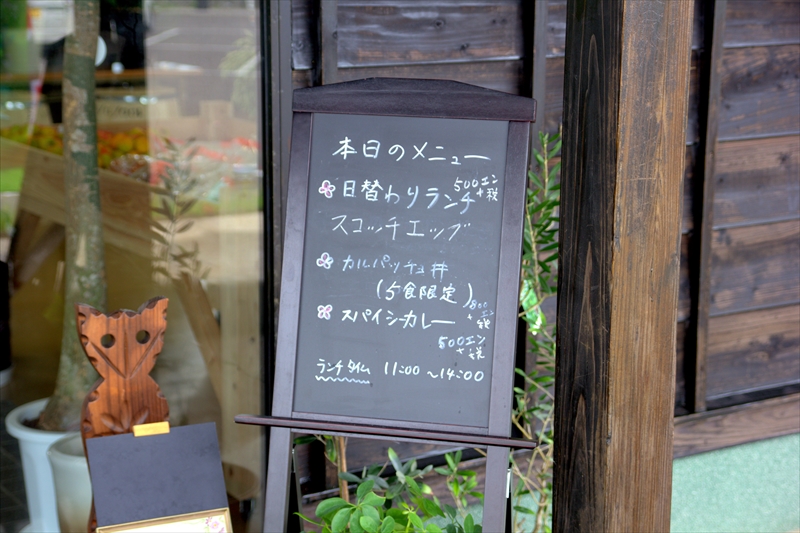 本日のメニュー
日替わりランチ 500エン+税
スコッチエッグ
カルパッチョ丼
(5食限定) 800エン+税
スパイシーカレー
500エン+税
ランチタイム 11:00〜14:00